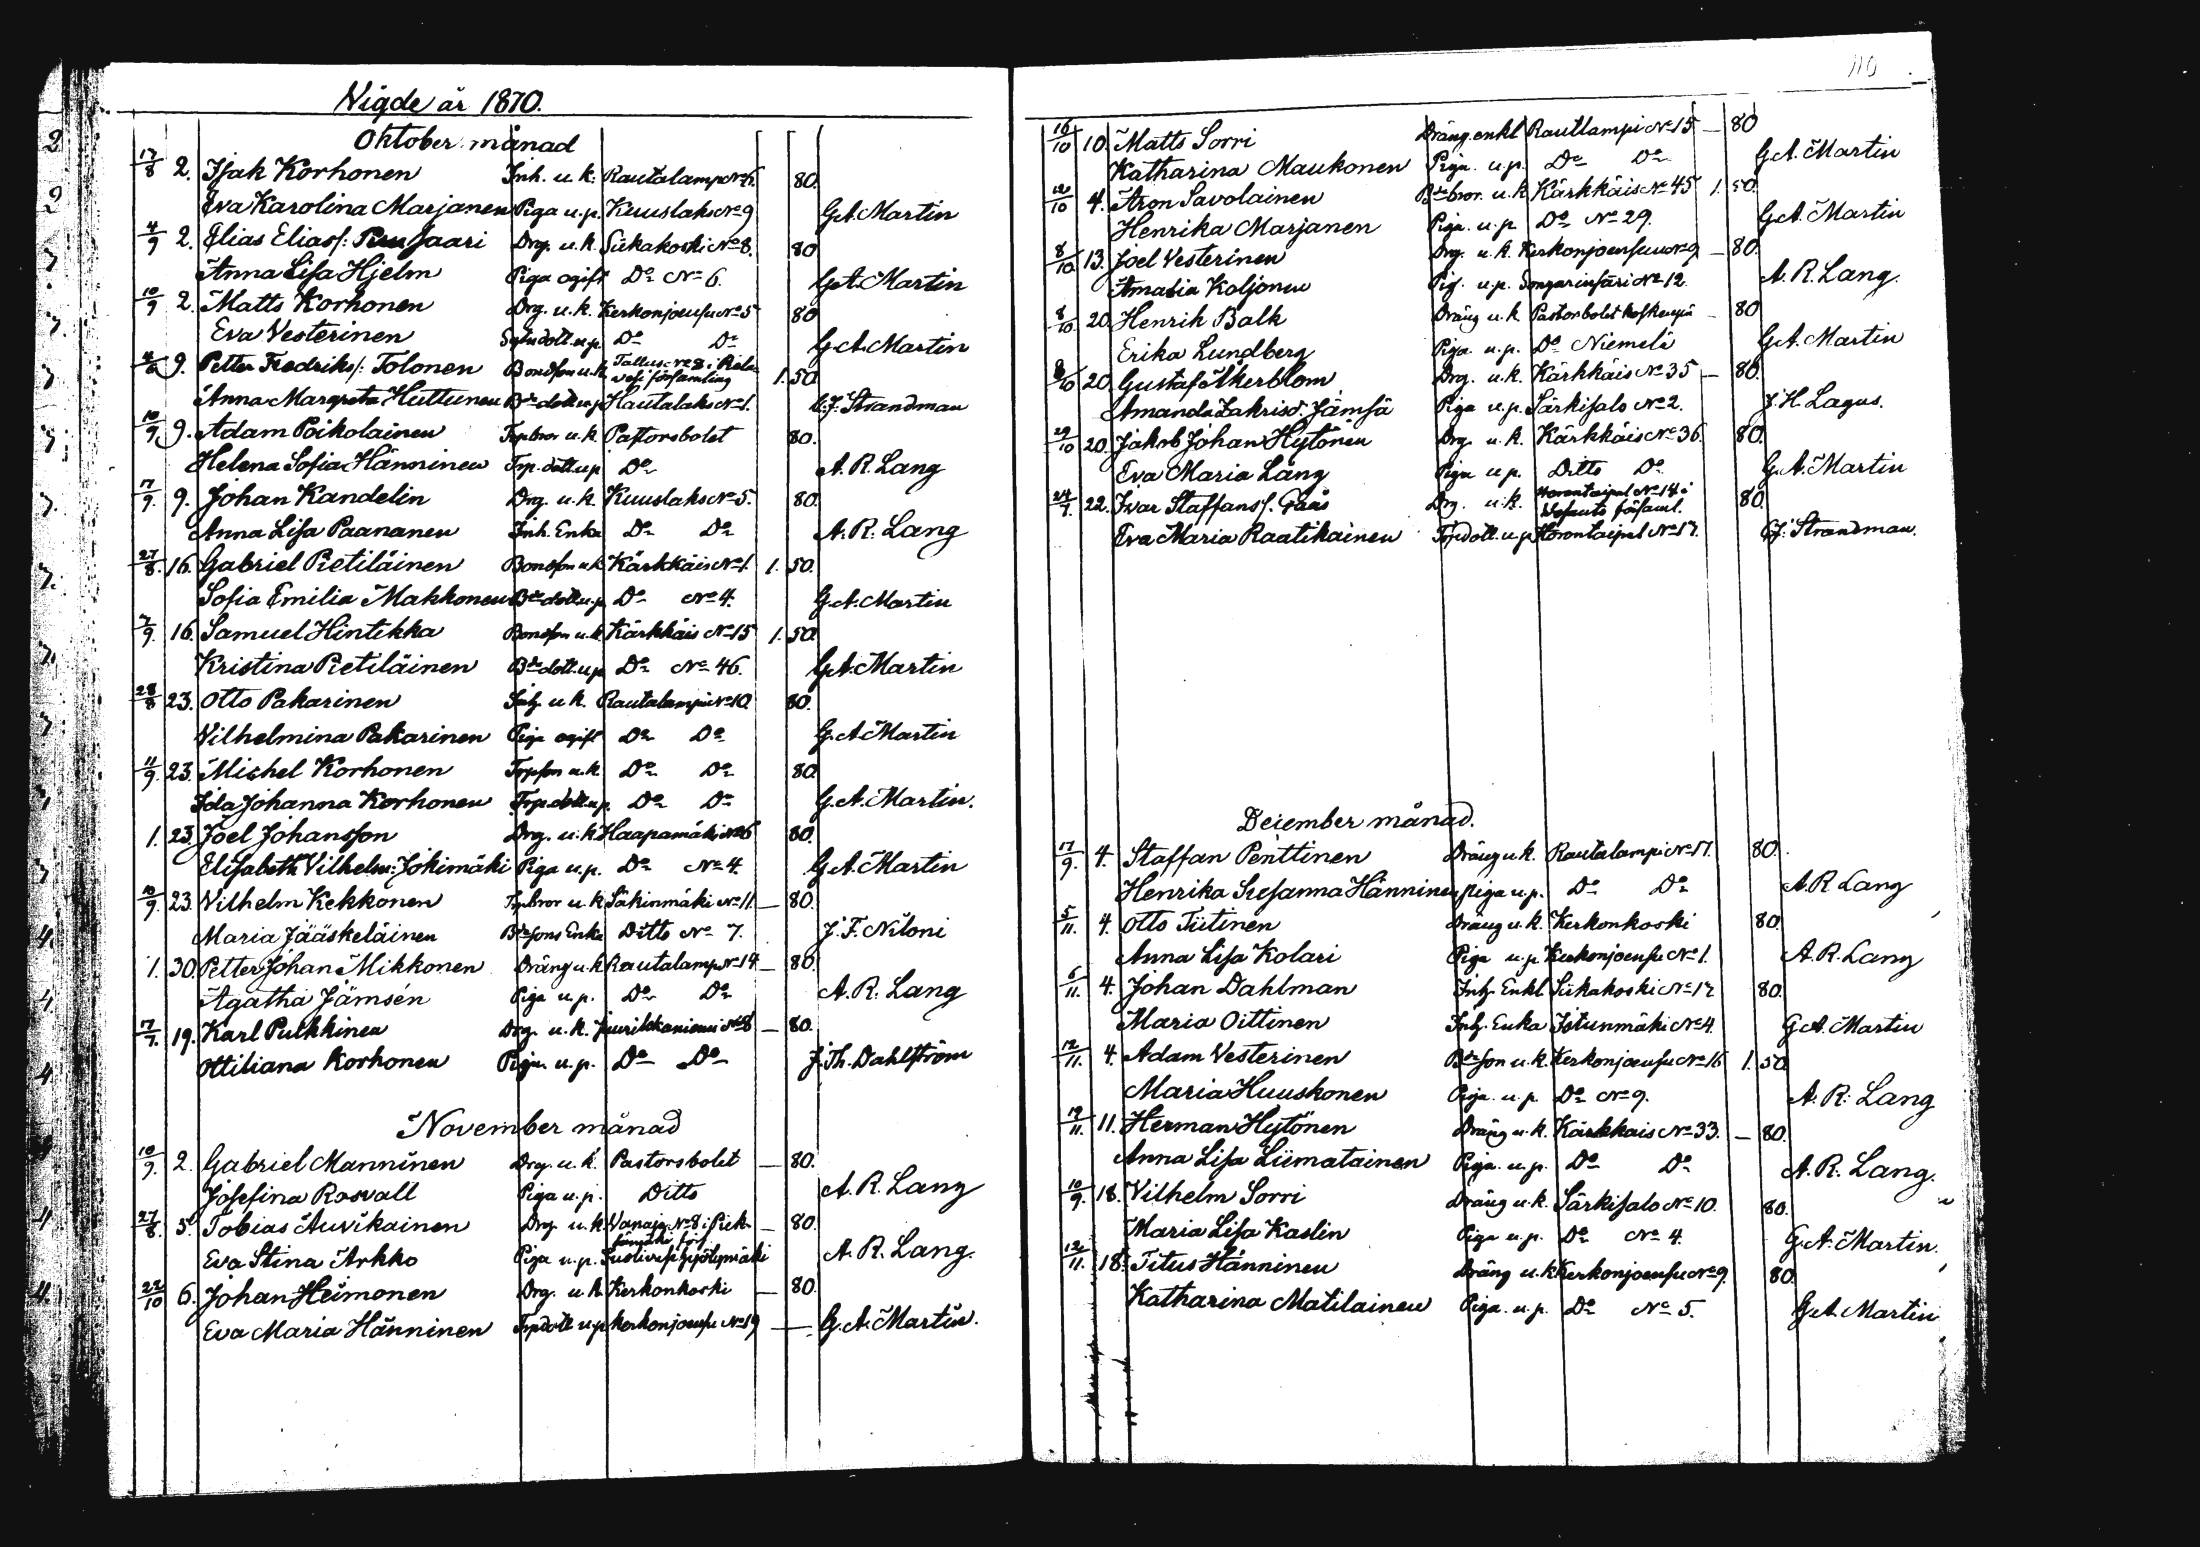 Vigde år 1870.
Oktober månad
17/8 2. Isak Korhonen Inh. u. k. Rautalampi No 6. 80.
Eva Karolina Marjanen Piga u. p. Kuuslaks No 9 G. A. Martin
4/9 2. Elias Eliass: Drg. u. k. Siikakoski No 8. 80
Anna Lisa Hjelm Piga ogift Do No 6. G. A. Martin
10/9 2. Matts Korhonen Drg. u. k. Kerkonjoensu No 5 80
Eva Vesterinen u. p. Do Do G. A. Martin
9. Petter Fredriks/: Tolonen Bondson u. k. Tallus No 8 i Piela-
vesi församling 1. 50
Anna Margreta Huttunen Bde dott. u. p. Hautalaks No 1. C. J. Strandman
10/9 9. Adam Poikolainen Trp. bror u. k. Pastorsbolet 80.
Helena Sofia Hänninen Trp. dott. u. p. Do A. R. Lang
7/9. 9. Johan Kandelin Drg. u. k. Kuuslaks No 5. 80.
Anna Lisa Paananen Inh. Enka Do Do A. R. Lang
27/8. 16. Gabriel Pietiläinen Bondson u. k. Kärkkäis No 1. 1. 50.
Sofia Emilia Makkonen Bde dott. u. p. Do No 4. G. A. Martin
7/9. 16. Samuel Hintikka Bondson u. k. Kärkkäis No 15 1. 50.
Kristina Pietiläinen Bde dott. u. p. Do No 46. G. A. Martin
28/8 23. Otto Pakarinen Inh. u. k. Rautalampi No 10. 80.
Vilhelmina Pakarinen Piga ogift Do Do G. A. Martin
11/9. 23. Michel Korhonen Trpson u. k. Do Do 80.
Ida Johanna Korhonen Trp. dott. u. p. Do Do G. A. Martin.
1. 23. Joel Johansson Drg. u. k. Haapamäki No 6 80.
Elisabeth Vilhelm: Jokimäki Piga u. p. Do No 4. G. A. Martin
10/9. 23. Vilhelm Kekkonen Trp. bror u. k. Säkinmäki No 11 — 80.
Maria Jääskeläinen Bde sons Enka Ditto No 7. J. F. Niloni
1. 30. Petter Johan Mikkonen Dräng u. k. Rautalampi No 14 — 80.
Agatha Jämsén Piga u. p. Do Do A. R. Lang
7/7. 19. Karl Pulkkinen Drg. u. k. No 8 — 80.
Ottiliana Korhonen Piga u. p. Do Do J. Th. Dahlström
November månad
10/9. 2. Gabriel Manninen Drg. u. k. Pastorsbolet — 80.
Josefina Rosvall Piga u. p. Ditto A. R. Lang
27/8. 5. Tobias Auvikainen Drg. u. k. Vanaja No 8 i Piek-
sämäki förs. — 80.
Eva Stina Arkko Piga u. p. A. R. Lang.
22/10 6. Johan Heimonen Drg. u. k. Kerkonkoski — 80.
Eva Maria Hänninen Trpdott u. p. Kerkonjoensu No 19 — G. A. Martin.
110
16/10 10. Matts Sorri Dräng. enkl. Rautlampi No 15 — 80
Katharina Maukonen Piga. u. p. Do Do G. A. Martin
12/10 4. Aron Savolainen Bde bror. u. k. Kärkkäis No 45 1. 50.
Henrika Marjanen Piga. u. p. Do No 29. G. A. Martin
8/10. 13. Joel Vesterinen Drg. u. k. Kerkonjoensuu No 9 — 80.
Amalia Koljonen Pig. u. p. Songarinsaari No 12 A. R. Lang.
8/10. 20. Henrik Balk Dräng u. k. Pastorbolet — 80
Erika Lundberg Piga. u. p. Do Niemelä G. A. Martin
8/10 20. Gustaf Åkerblom Drg. u. k. Kärkkäis No 35 — 80.
Amanda Zakrisd. Jämsä Piga u. p. Särkisalo No 2. J. H. Lagus.
29/10 20. Jakob Johan Hytönen Drg. u. k. Kärkkäis No 36. 80.
Eva Maria Lång Piga u. p. Ditto Do G. A. Martin
24/7. 22. Ivar Staffans/. Gääs Drg. u. k. No 14 i
församl. 80.
Eva Maria Raatikainen Trpdott. u. p. Horontaipal No 17. C. J. Strandman.
December månad.
17/9. 4. Staffan Penttinen Dräng u. k. Rautalampi No 17. 80.
Henrika Susanna Hänninen Piga u. p. Do Do A. R. Lang
5/11. 4. Otto Tiitinen Dräng u. k. Kerkonkoski 80.
Anna Lisa Kolari Piga u. p. Kerkonjoensu No 1. A. R. Lang
6/11. 4. Johan Dahlman Inh. Enkl. Siikakoski No 12 80.
Maria Oittinen Inh. Enka Istunmäki No 4. G. A. Martin
12/11. 4. Adam Vesterinen Bde son u. k. Kerkonjoensu No 16 1. 50.
Maria Huuskonen Piga. u. p. Do No 9. A. R. Lang
19/11. 11. Herman Hytönen Dräng u. k. Kärkkais No 33. — 80.
Anna Lisa Liimatainen Piga. u. p. Do Do A. R. Lang.
10/9. 18. Vilhelm Sorri Dräng u. k. Särkisalo No 10. 80.
Maria Lisa Kaslin Piga u. p. Do No 4. G. A. Martin.
12/11. 18. Titus Hänninen Dräng u. k. Kerkonjoensu No 9. 80.
Katharina Matilainen Piga. u. p. Do No 5. G. A. Martin